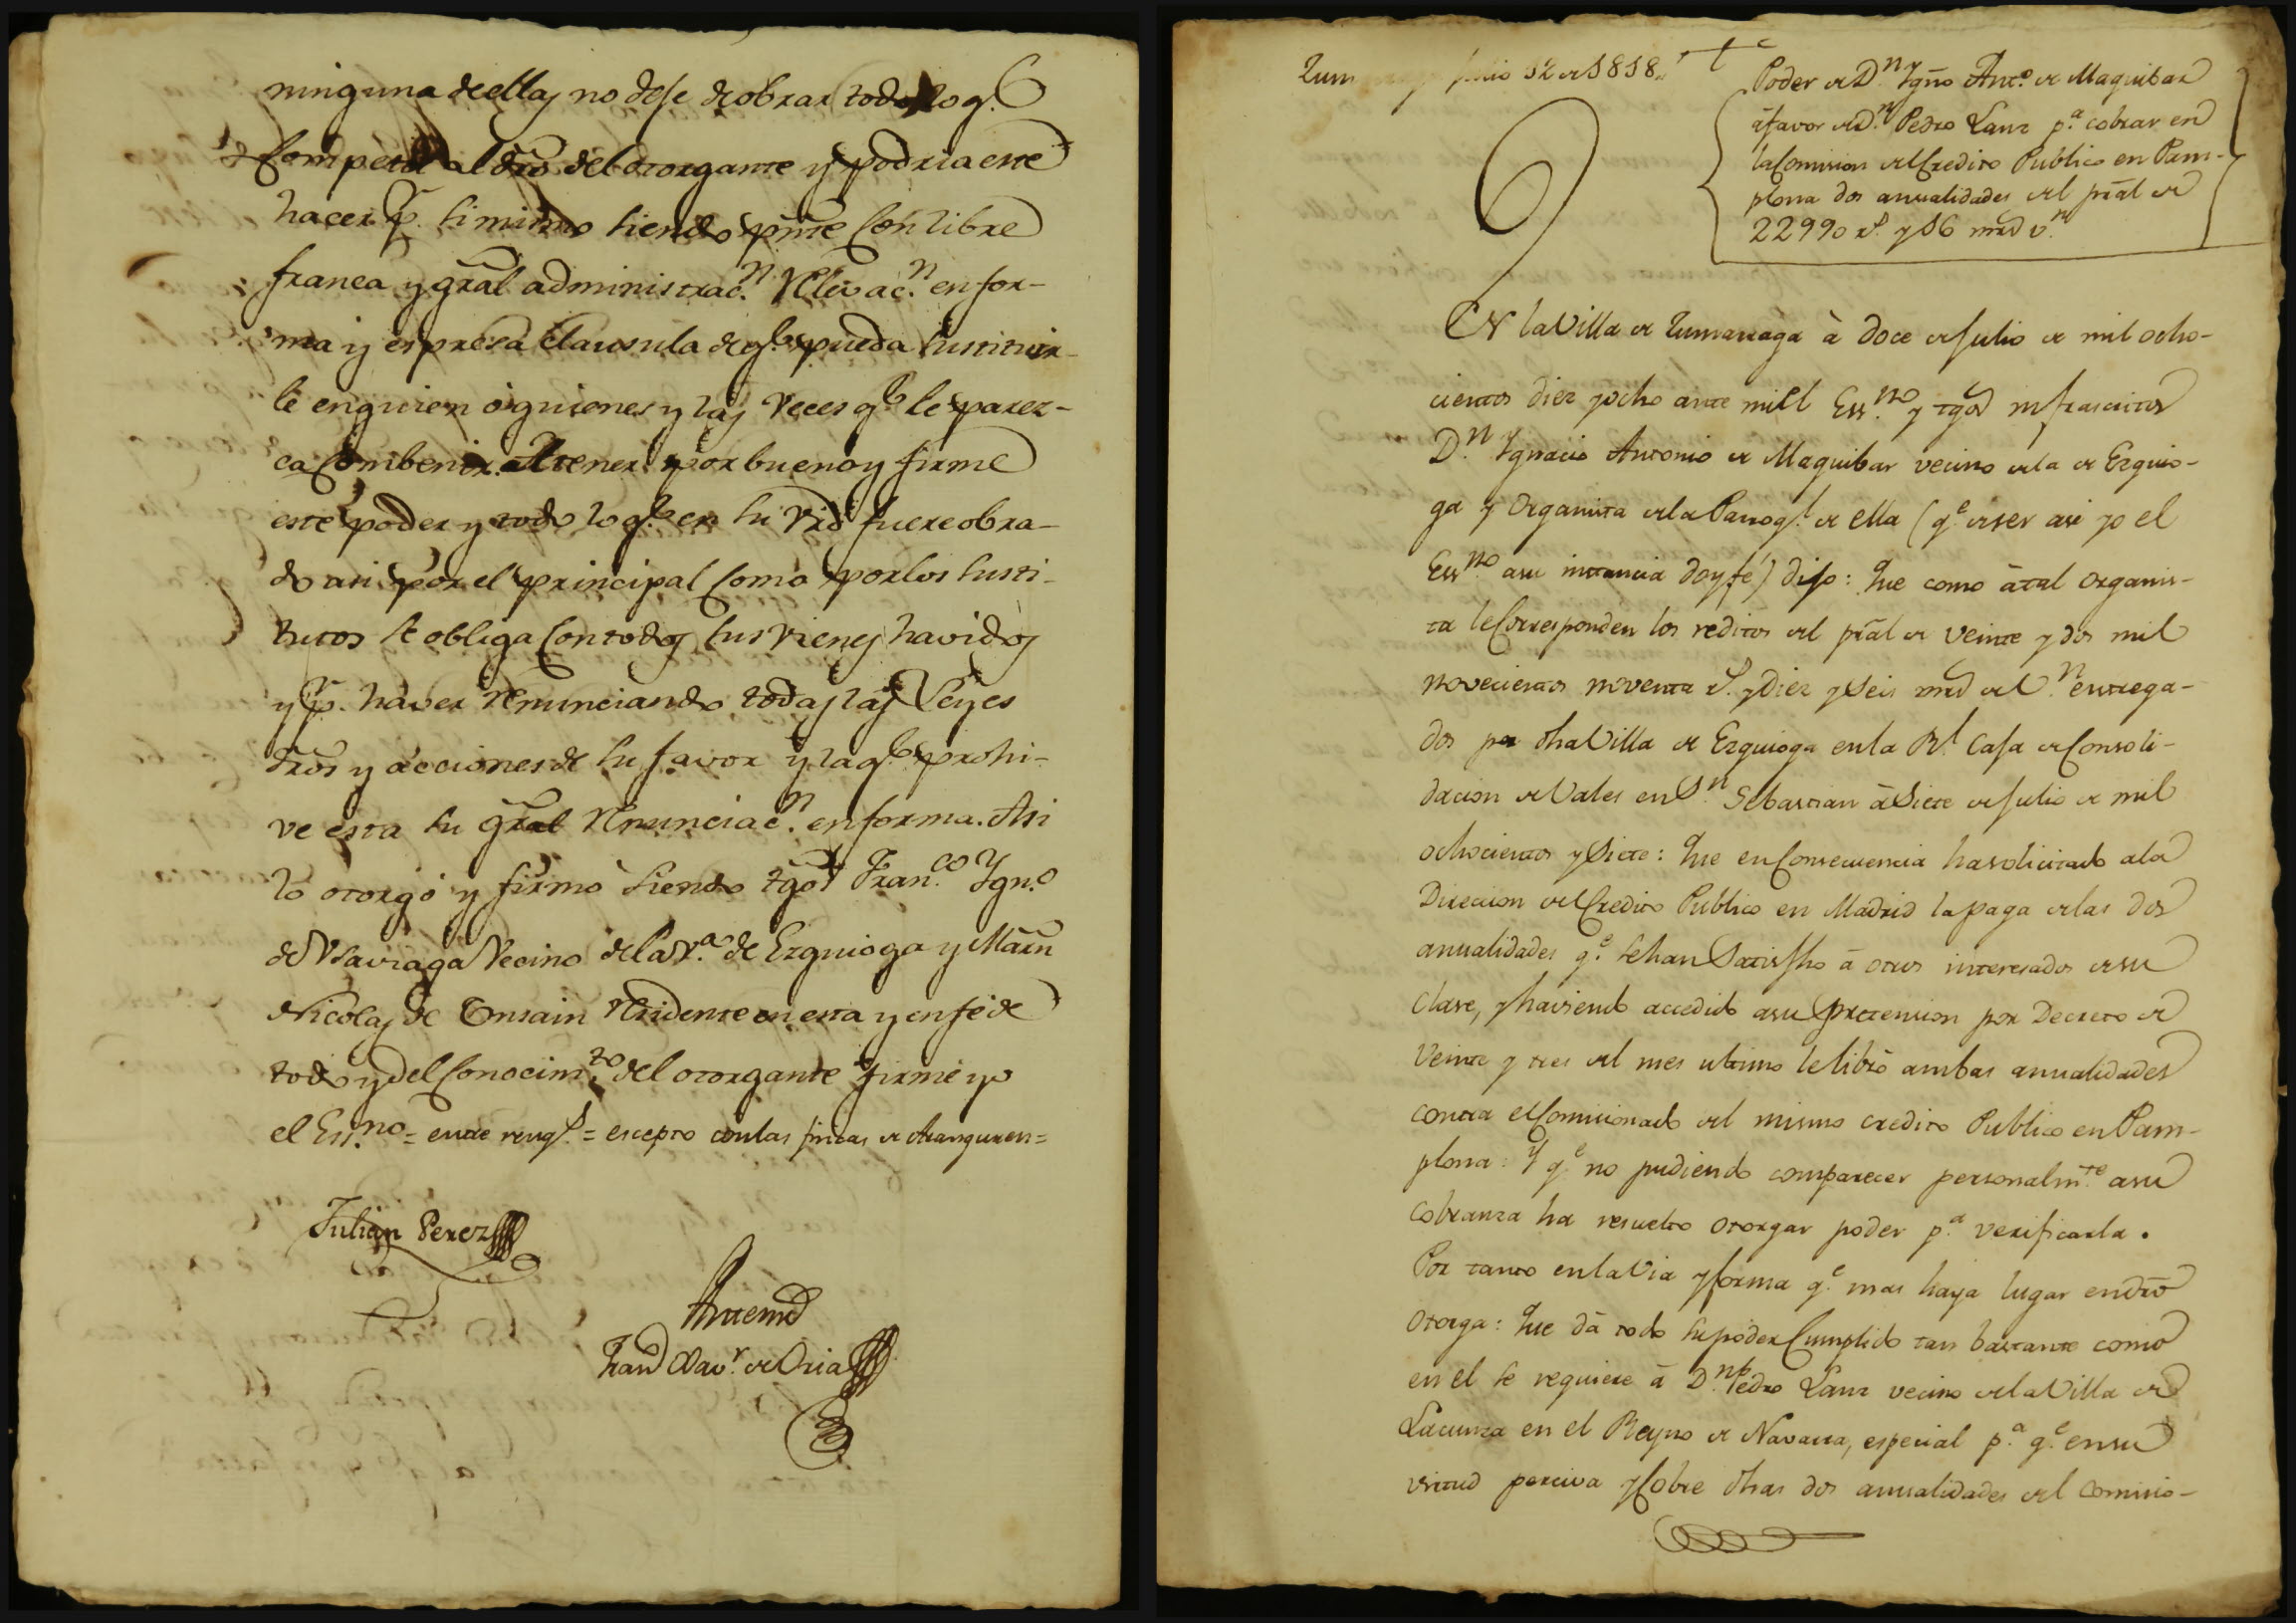 ninguna de ellas no deje de obrar todo lo q.
Compete al dro del otorgante y podria este
hacer p. si mismo siendo pnte con libre
franca y gral administrac.n relevac.n en for-
ma y espresa clausula de q.e pueda sustituir-
le en quien ó quienes y las veces q.e le parez-
ca combenir. A tener por bueno y firme
este poder y todo lo q.e en su vrd fuere obra-
do asi por el principal como por los susti-
tutos se obliga con todos sus vienes havidos
y p. haver renunciando todas las Leyes
dros y acciones de su favor y la q.e prohi-
ve esta su gral renunciac.n en forma. Asi
lo otorgó y firmó siendo tgos Fran.co Ygn.o
de Vaviaga vecino de la V.a de Ezquioga y Marn
Nicolas de Onsain residente en esta y en fé de
todo y del conocim.to del otorgante firmé yo
el Ess.no = entre rengs. = escepto con las fincas de Aranguren =
Julian Perez
Antemi
Fran Xav.r de Oria
Zum Julio 12 de 1818.
Poder de D.n Ygno Ant.o de Maquibar
á favor de D.n Pedro Lanz p.a cobrar en
la Comision del Credito Publico en Pam-
plona dos anualidades del pral de
22990 rs. y 16 mrs v.n
EN la Villa de Zumarraga à doce de Julio de mil ocho-
cientos diez y ocho ante mi el Ess.no y tgos infrascritos
D.n Ygnacio Antonio de Maquibar vecino de la de Ezquio-
ga y Organista de la Parroq.l de ella (q.e de ser asi yo el
Ess.no a su instancia doy fé) dijo: Que como á tal organis-
ta le corresponden los reditos del pral de veinte y dos mil
novecientos noventa rs. y diez y seis mrs de V.n entrega-
dos por dha Villa de Ezquioga en la R.l Casa de Consoli-
dacion de Vales en S.n Sebastian á Siete de Julio de mil
ochocientos y Siete: Que en Consecuencia ha solicitado a la
Direccion del Credito Publico en Madrid la paga de las dos
anualidades q.e se han Satisfho á otros interesados de su
Clase, y haviendo accedido a su pretension por Decreto de
Veinte y tres del mes ultimo le libró ambas anualidades
contra el Comisionado del mismo credito Publico en Pam-
plona: Y q.e no pudiendo comparecer personalm.te a su
Cobranza ha resuelto otorgar poder p.a verificarla.
Por tanto en la Via y forma q.e mas haya lugar en dro
Otorga: Que dá todo su poder Cumplido tan bastante como
en el se requiere á D.n Pedro Lanz vecino de la Villa de
Lacunza en el Reyno de Navarra, especial p.a q.e en su
virtud perciva y Cobre dhas dos anualidades del comisio-